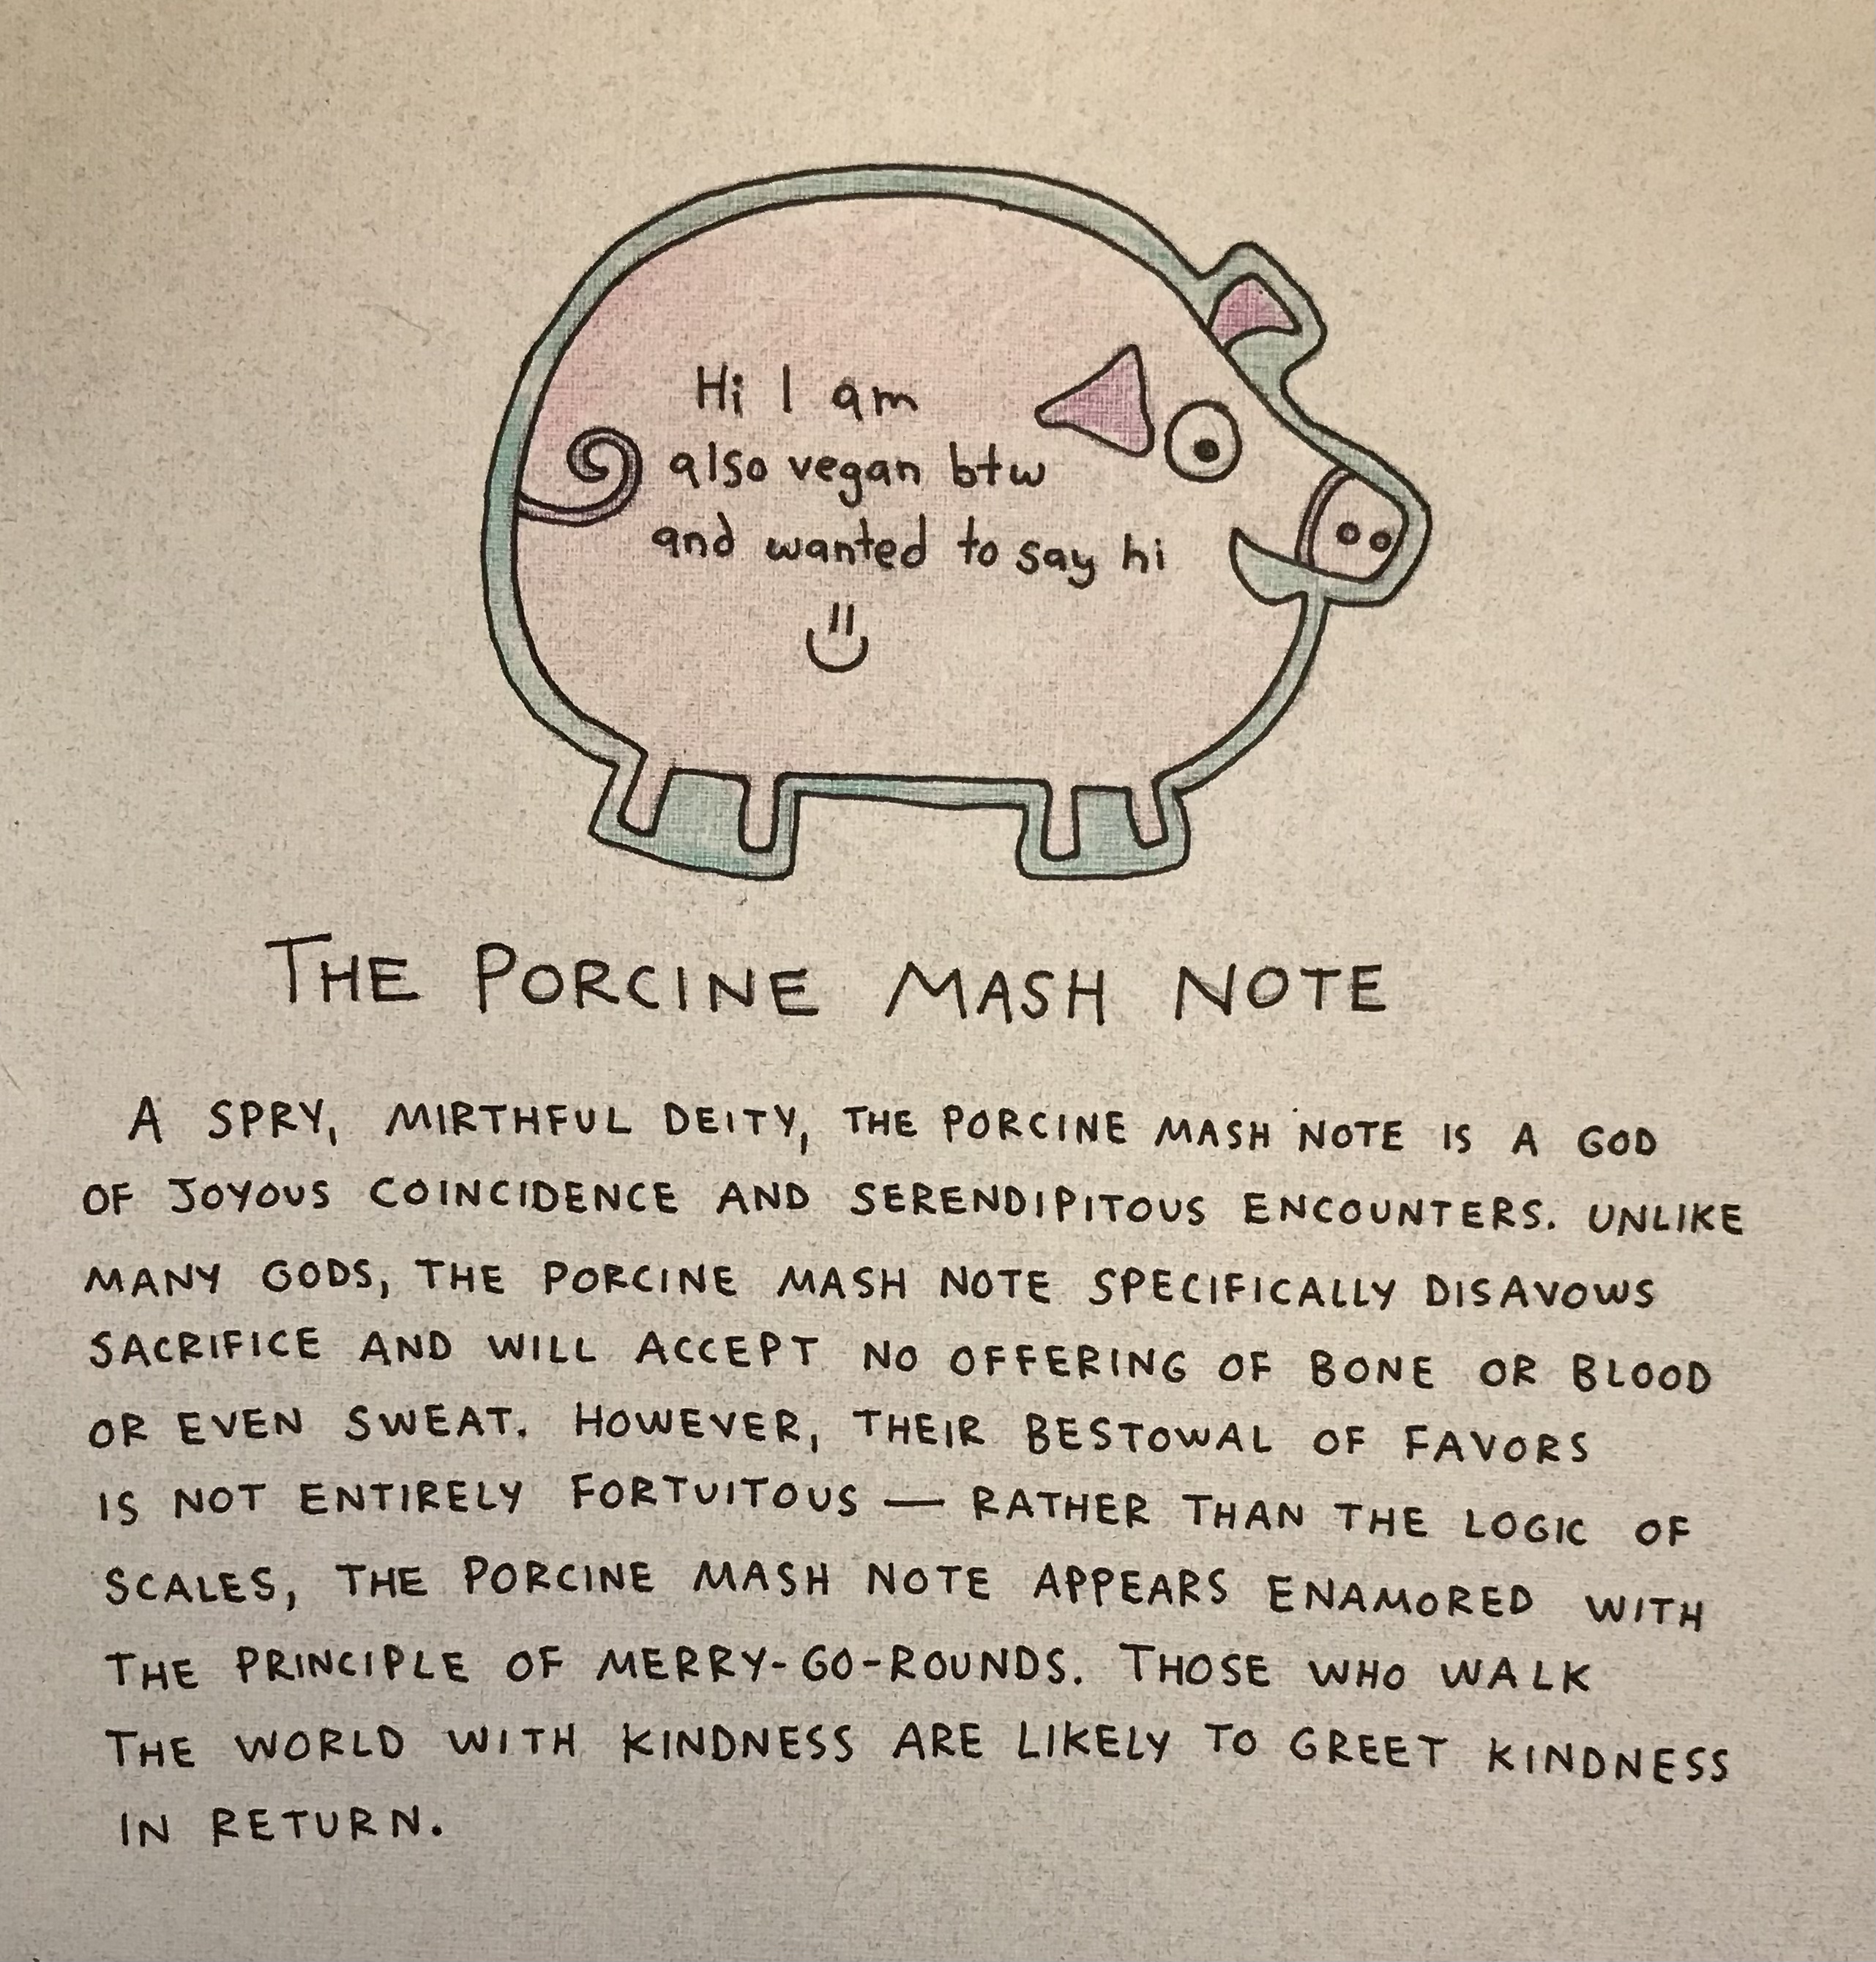 Hi I am
also vegan btw
and wanted to say hi
THE PORCINE MASH NOTE
A SPRY, MIRTHFUL DEITY, THE PORCINE MASH NOTE IS A GOD
OF JOYOUS COINCIDENCE AND SERENDIPITOUS ENCOUNTERS. UNLIKE
MANY GODS, THE PORCINE MASH NOTE SPECIFICALLY DISAVOWS
SACRIFICE AND WILL ACCEPT NO OFFERING OF BONE OR BLOOD
OR EVEN SWEAT. HOWEVER, THEIR BESTOWAL OF FAVORS
IS NOT ENTIRELY FORTUITOUS — RATHER THAN THE LOGIC OF
SCALES, THE PORCINE MASH NOTE APPEARS ENAMORED WITH
THE PRINCIPLE OF MERRY-GO-ROUNDS. THOSE WHO WALK
THE WORLD WITH KINDNESS ARE LIKELY TO GREET KINDNESS
IN RETURN.